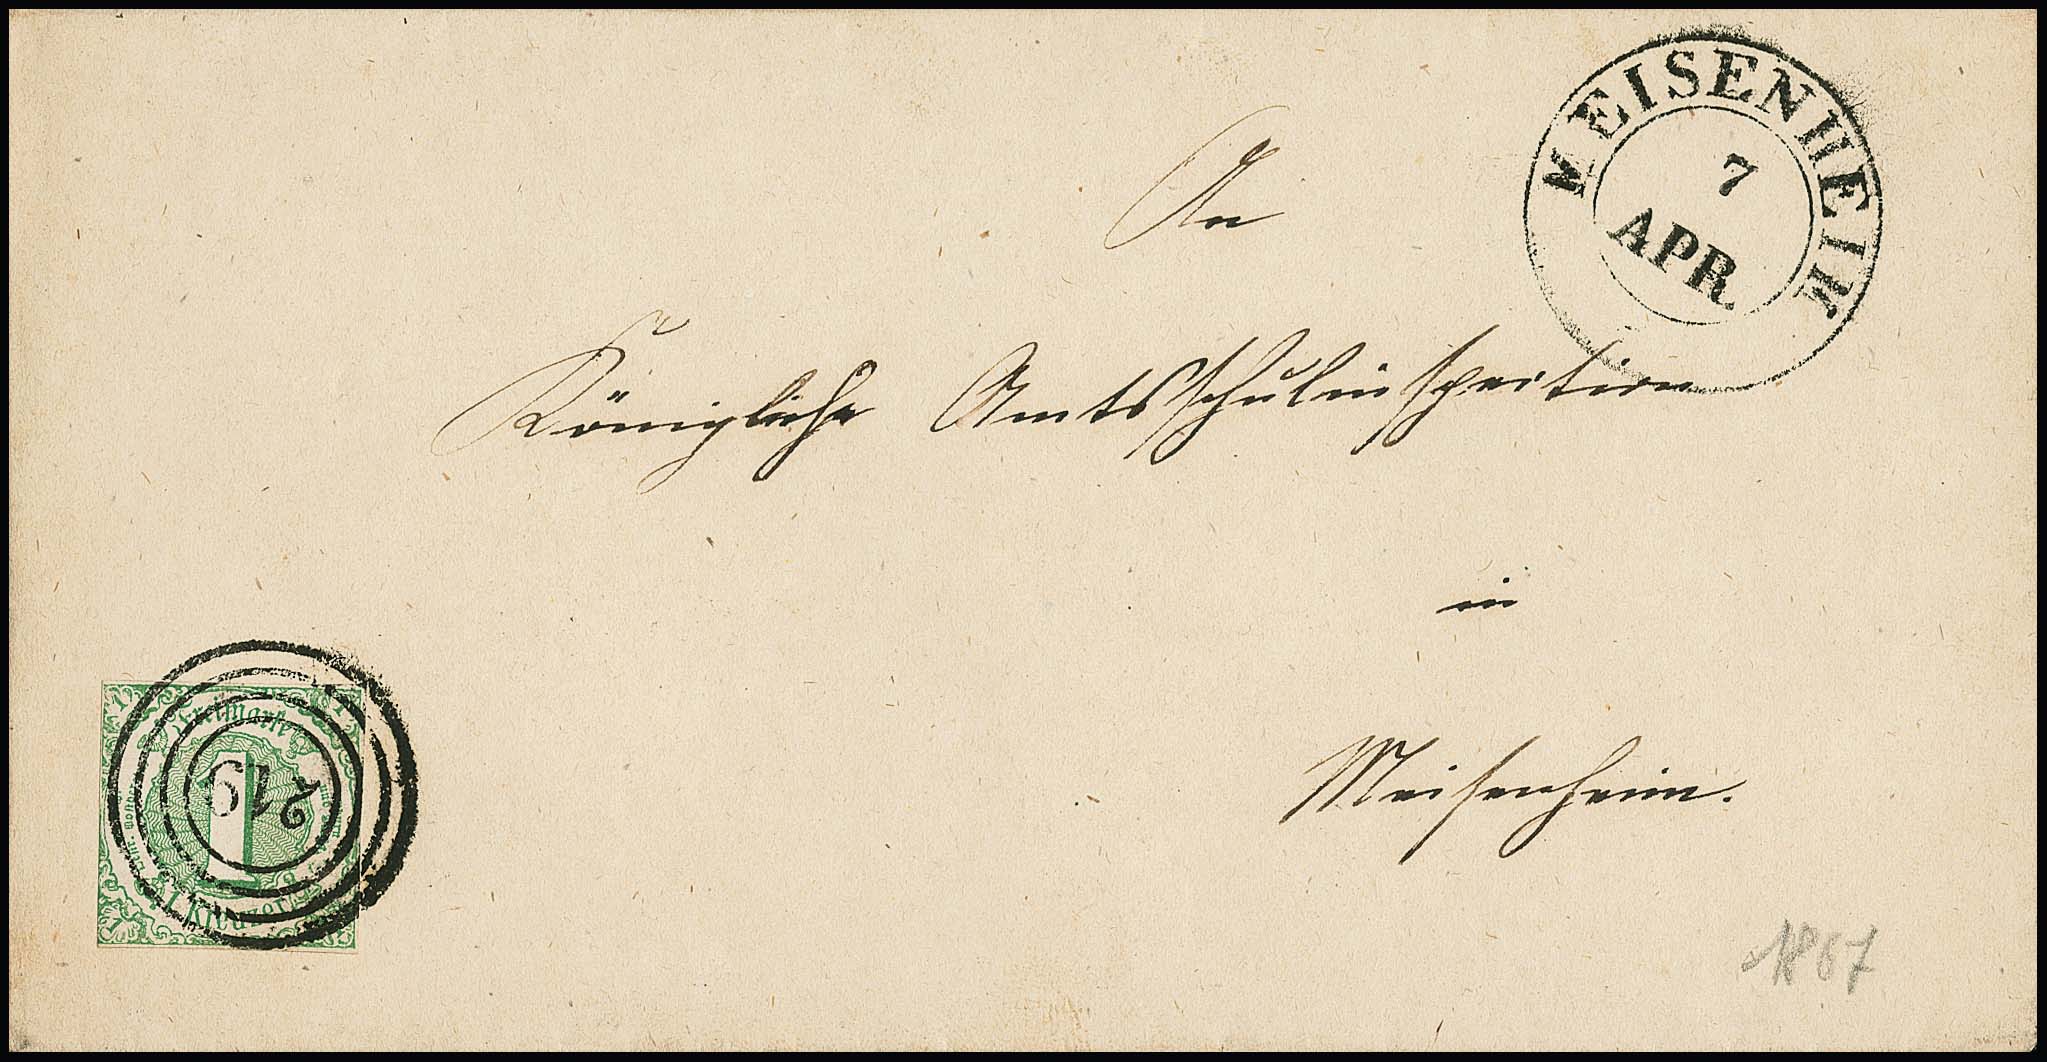 MEISENHEIM
7
APR.
An
Königliche Amtsschulinspection
in
Meisenheim.
Freimarke
1
219
1 Kreuzer
1867